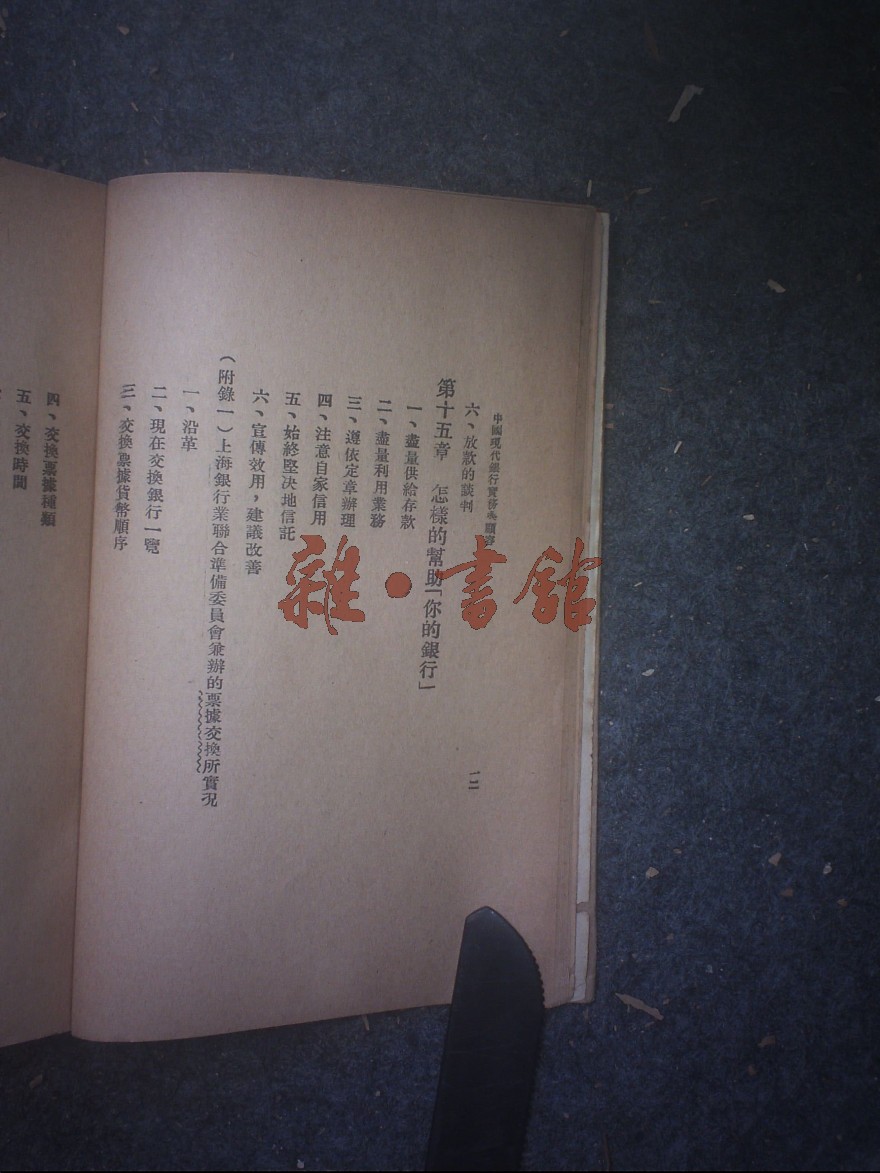 中國現代銀行實務與顧客
一二
六、放款的談判
第十五章　怎樣的幫助「你的銀行」
一、盡量供給存款
二、盡量利用業務
三、遵依定章辦理
四、注意自家信用
五、始終堅決地信託
六、宣傳效用，建議改善
（附錄一）上海銀行業聯合準備委員會兼辦的票據交換所實況
一、沿革
二、現在交換銀行一覽
三、交換票據貨幣順序
四、交換票據種類
五、交換時間
雜・書館